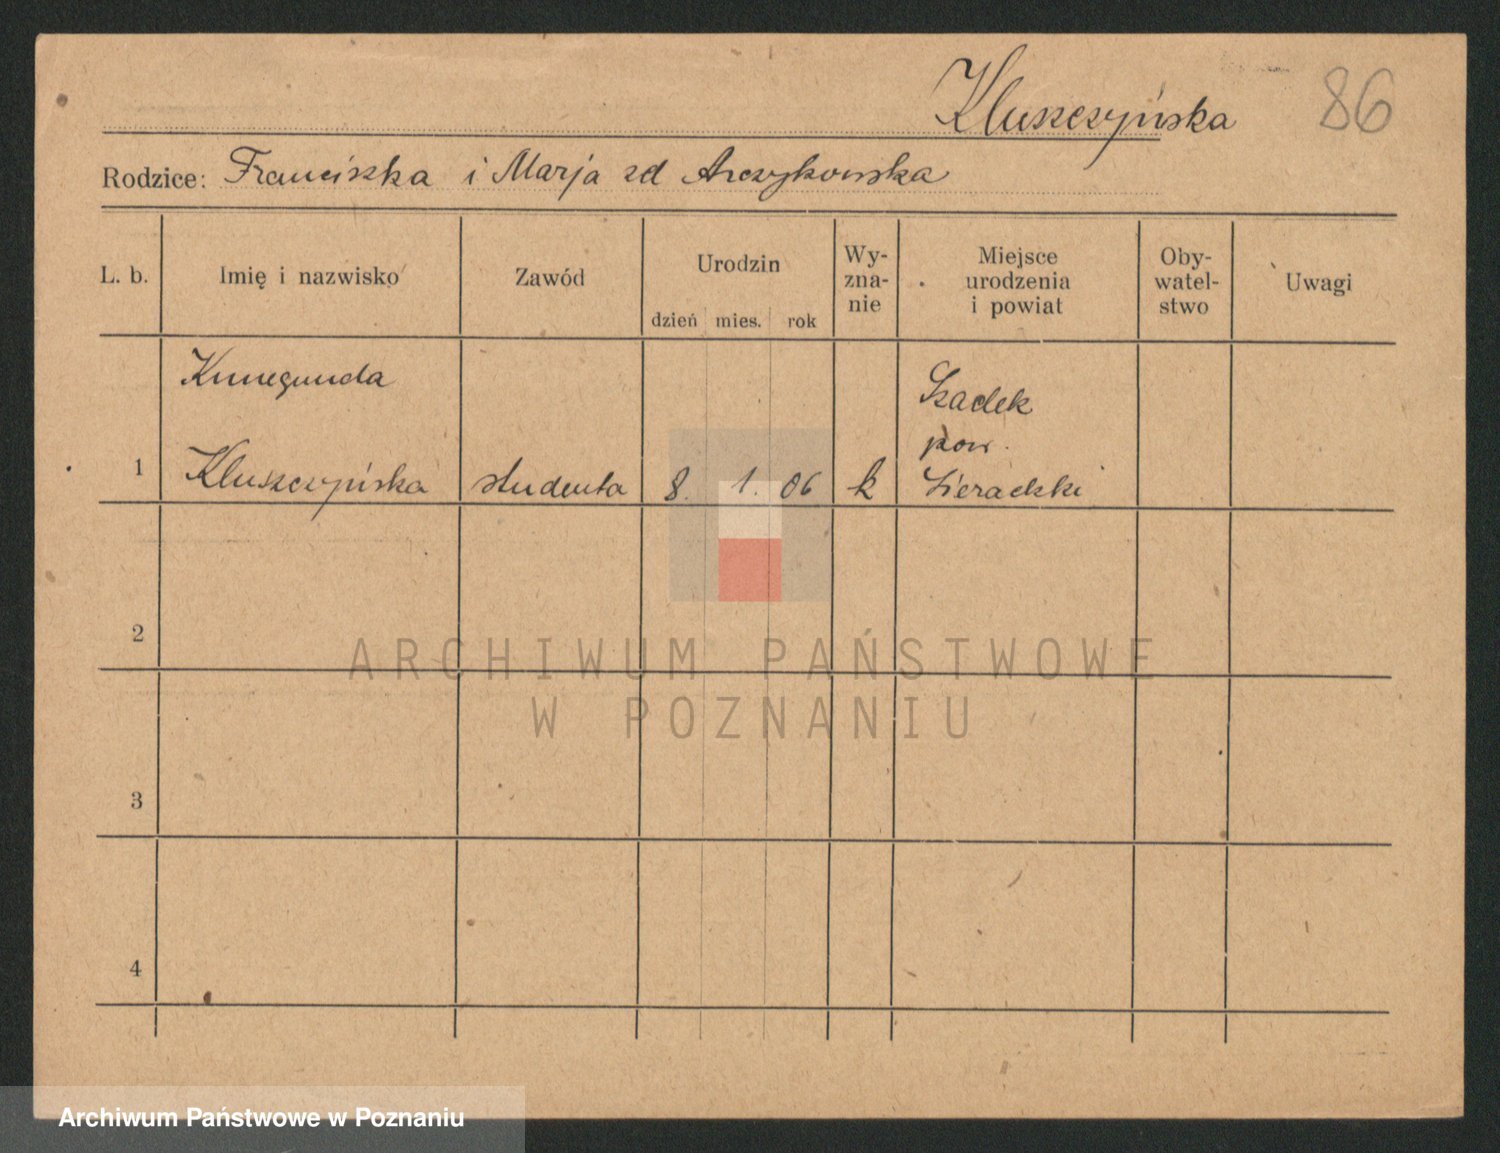 Kluszczyńska 86
Rodzice: Franciszka i Marja zd Arczykowska
L. b.
Imię i nazwisko
Zawód
Urodzin
dzień mies. rok
Wy-
zna-
nie
Miejsce
urodzenia
i powiat
Oby-
watel-
stwo
Uwagi
1
Kunegunda
Kluszczyńska
studentka
8. 1. 06
k
Szadek
pow.
Sieradzki
2
3
4
ARCHIWUM PAŃSTWOWE
W POZNANIU
Archiwum Państwowe w Poznaniu